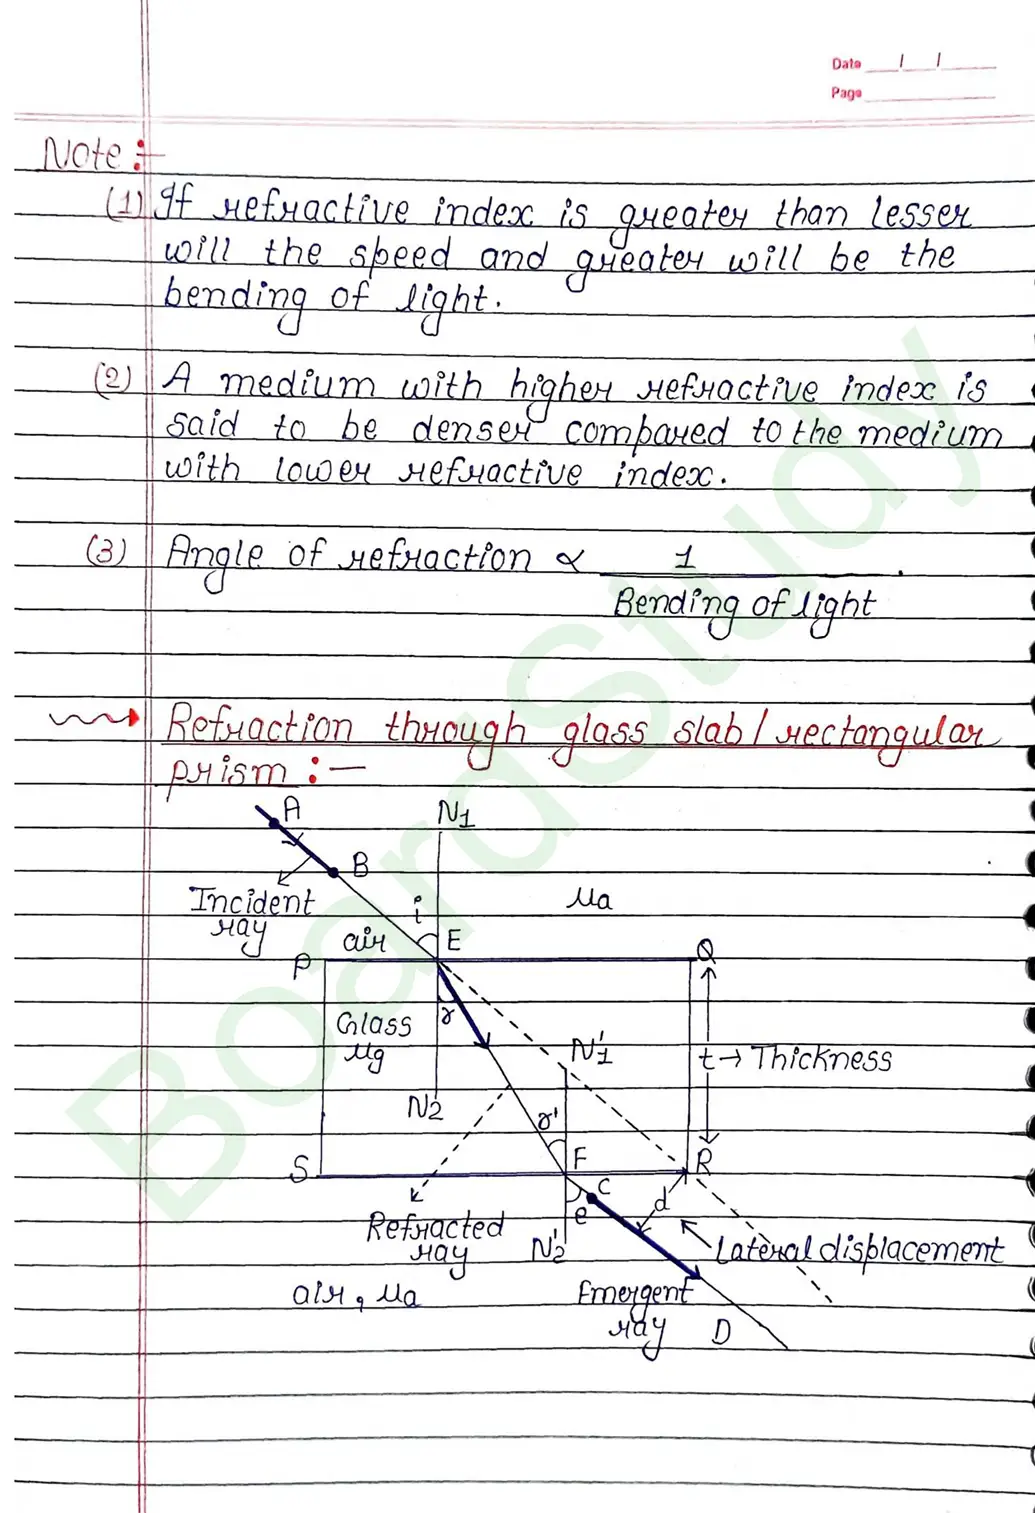 Date / /
Page
Note :-
(1) If refractive index is greater than lesser
will the speed and greater will be the
bending of light.
(2) A medium with higher refractive index is
said to be denser compared to the medium
with lower refractive index.
(3) Angle of refraction ∝ 1
Bending of light
Refraction through glass slab / rectangular
prism :-
A
N1
B
Incident
ray
i
μa
air
E
P
Q
r
Glass
μg
N1'
t → Thickness
N2
r'
S
F
R
C
e
d
Refracted
ray
N2'
Lateral displacement
air, μa
Emergent
ray
D
BoardStudy